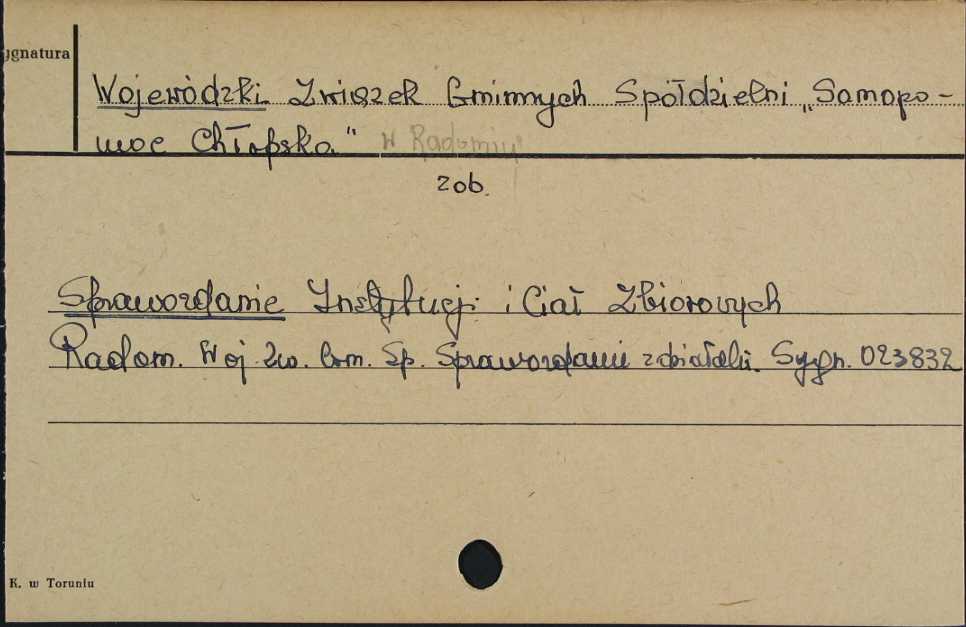 ygnatura
Wojewódzki Związek Gminnych Spółdzielni „Samopo-
moc Chłopska." w Radomiu
zob.
Sprawozdanie Instytucji i Ciał Zbiorowych
Radom. Woj. Zw. Gm. Sp. Sprawozdanie z działaln. Sygn. 023832
K. w Toruniu